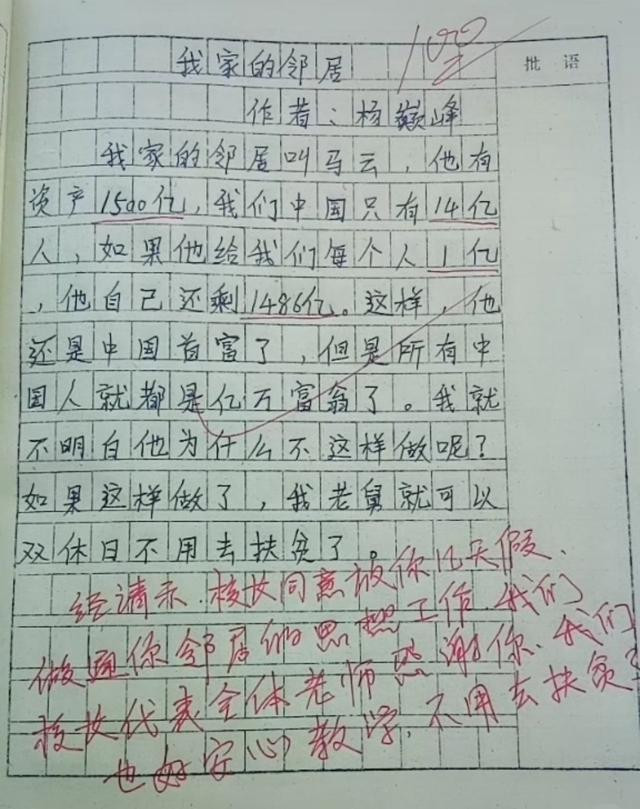 我家的邻居
100
批语
作者：杨巅峰
我家的邻居叫马云，他有
资产1500亿，我们中国只有14亿
人，如果他给我们每个人1亿
，他自己还剩1486亿。这样，他
还是中国首富了，但是所有中
国人就都是亿万富翁了。我就
不明白他为什么不这样做呢？
如果这样做了，我老舅就可以
双休日不用去扶贫了。
经请示.校女同意放你几天假、
做通你邻居的思想工作.我们
校女代表全体老师感谢你.我们
也好安心教学，不用去扶贫了